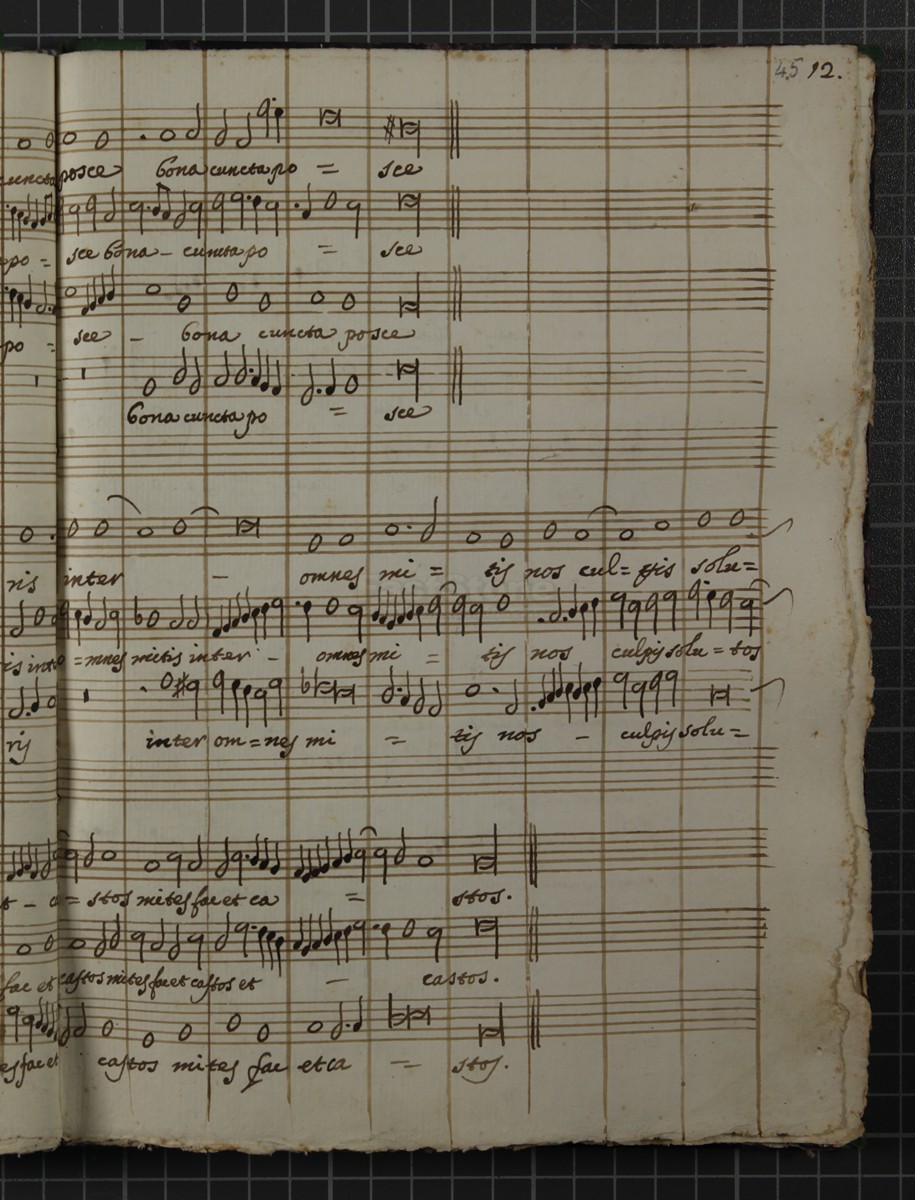 45 12.
cuncta posce bona cuncta po = sce
po = sce bona - cuncta po = sce
po = sce - bona cuncta posce
bona cuncta po = sce
ris inter - omnes mi = tis nos cul= pis solu=
is inter =mnes mitis inter - omnes mi = tis nos culpis solu = tos
ris inter om=nes mi = tis nos - culpis solu=
t - a = stos mites fac et ca = stos.
fac et castos mites fac et castos et - castos.
es fac et castos mites fac et ca - stos.